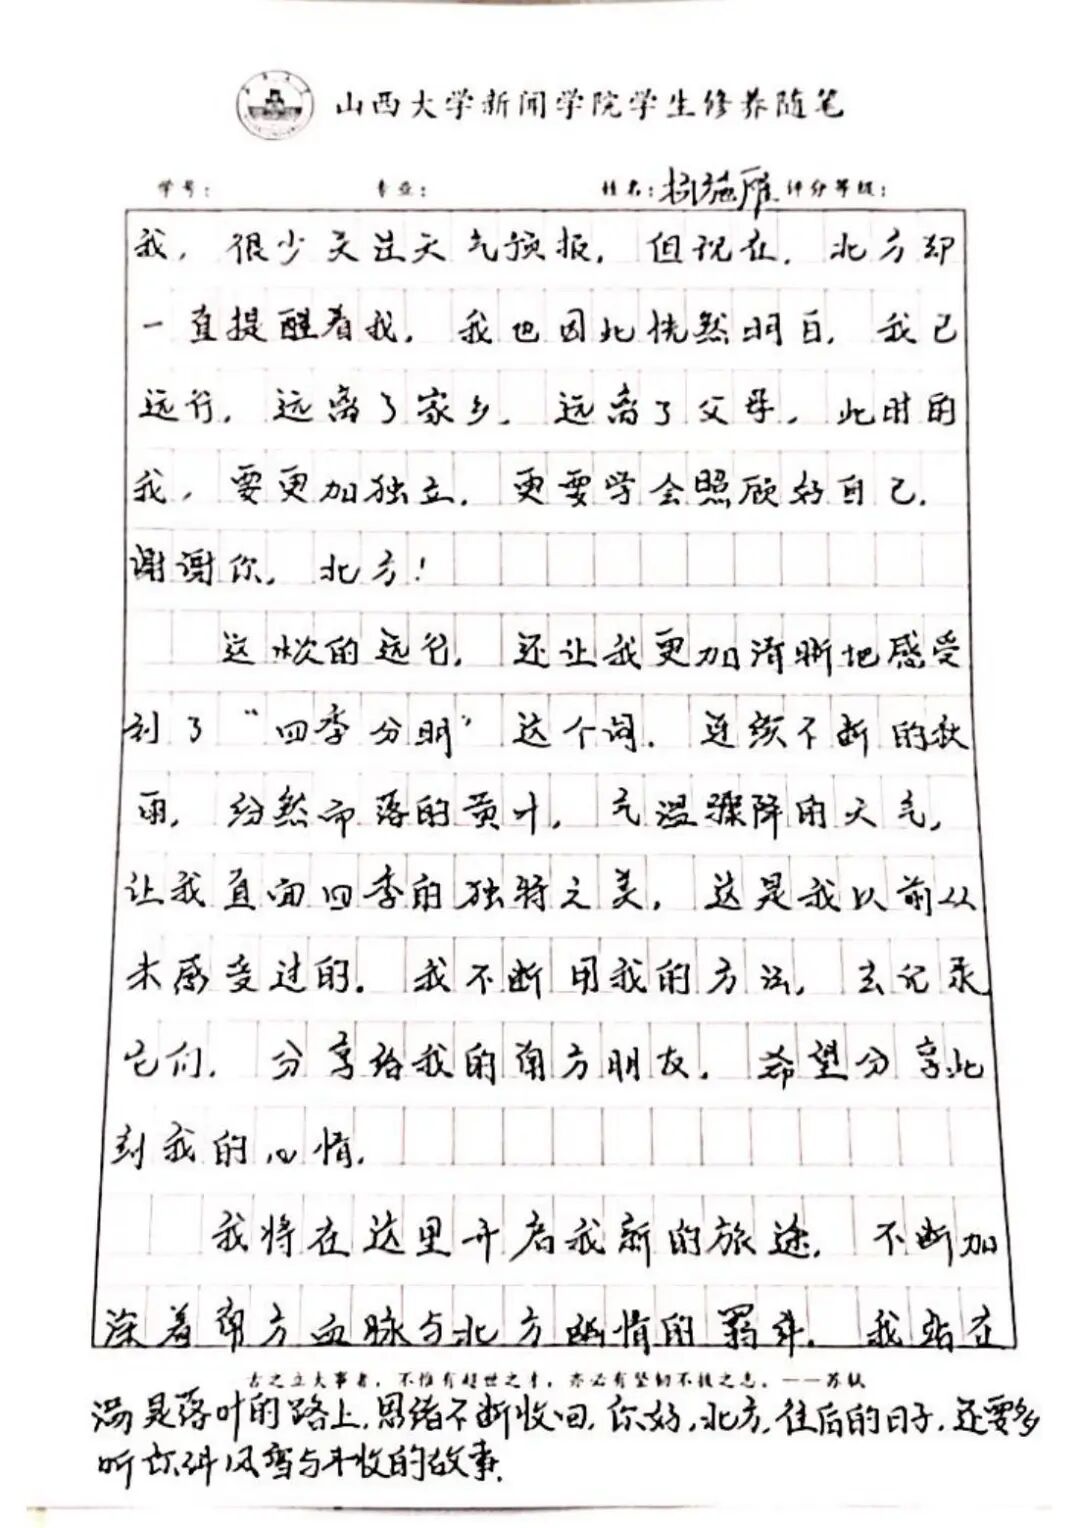 山西大学新闻学院学生修养随笔
学号： 专业： 姓名：杨施雁 评分等级：
我，很少关注天气预报，但现在，北方却
一直提醒着我，我也因此恍然明白，我已
远行，远离了家乡，远离了父母，此时的
我，要更加独立，更要学会照顾好自己，
谢谢你，北方！
这次的远行，还让我更加清晰地感受
到了“四季分明”这个词。连续不断的秋
雨，纷然而落的黄叶，气温骤降的天气，
让我直面四季的独特之美，这是我以前从
未感受过的。我不断用我的方法，去记录
它们，分享给我的南方朋友，希望分享此
刻我的心情。
我将在这里开启我新的旅途，不断加
深着南方血脉与北方幽情的羁绊，我站在
古之立大事者，不惟有超世之才，亦必有坚韧不拔之志。——苏轼
满是落叶的路上，思绪不断收回，你好，北方，往后的日子，还要多
听你讲风雪与丰收的故事。